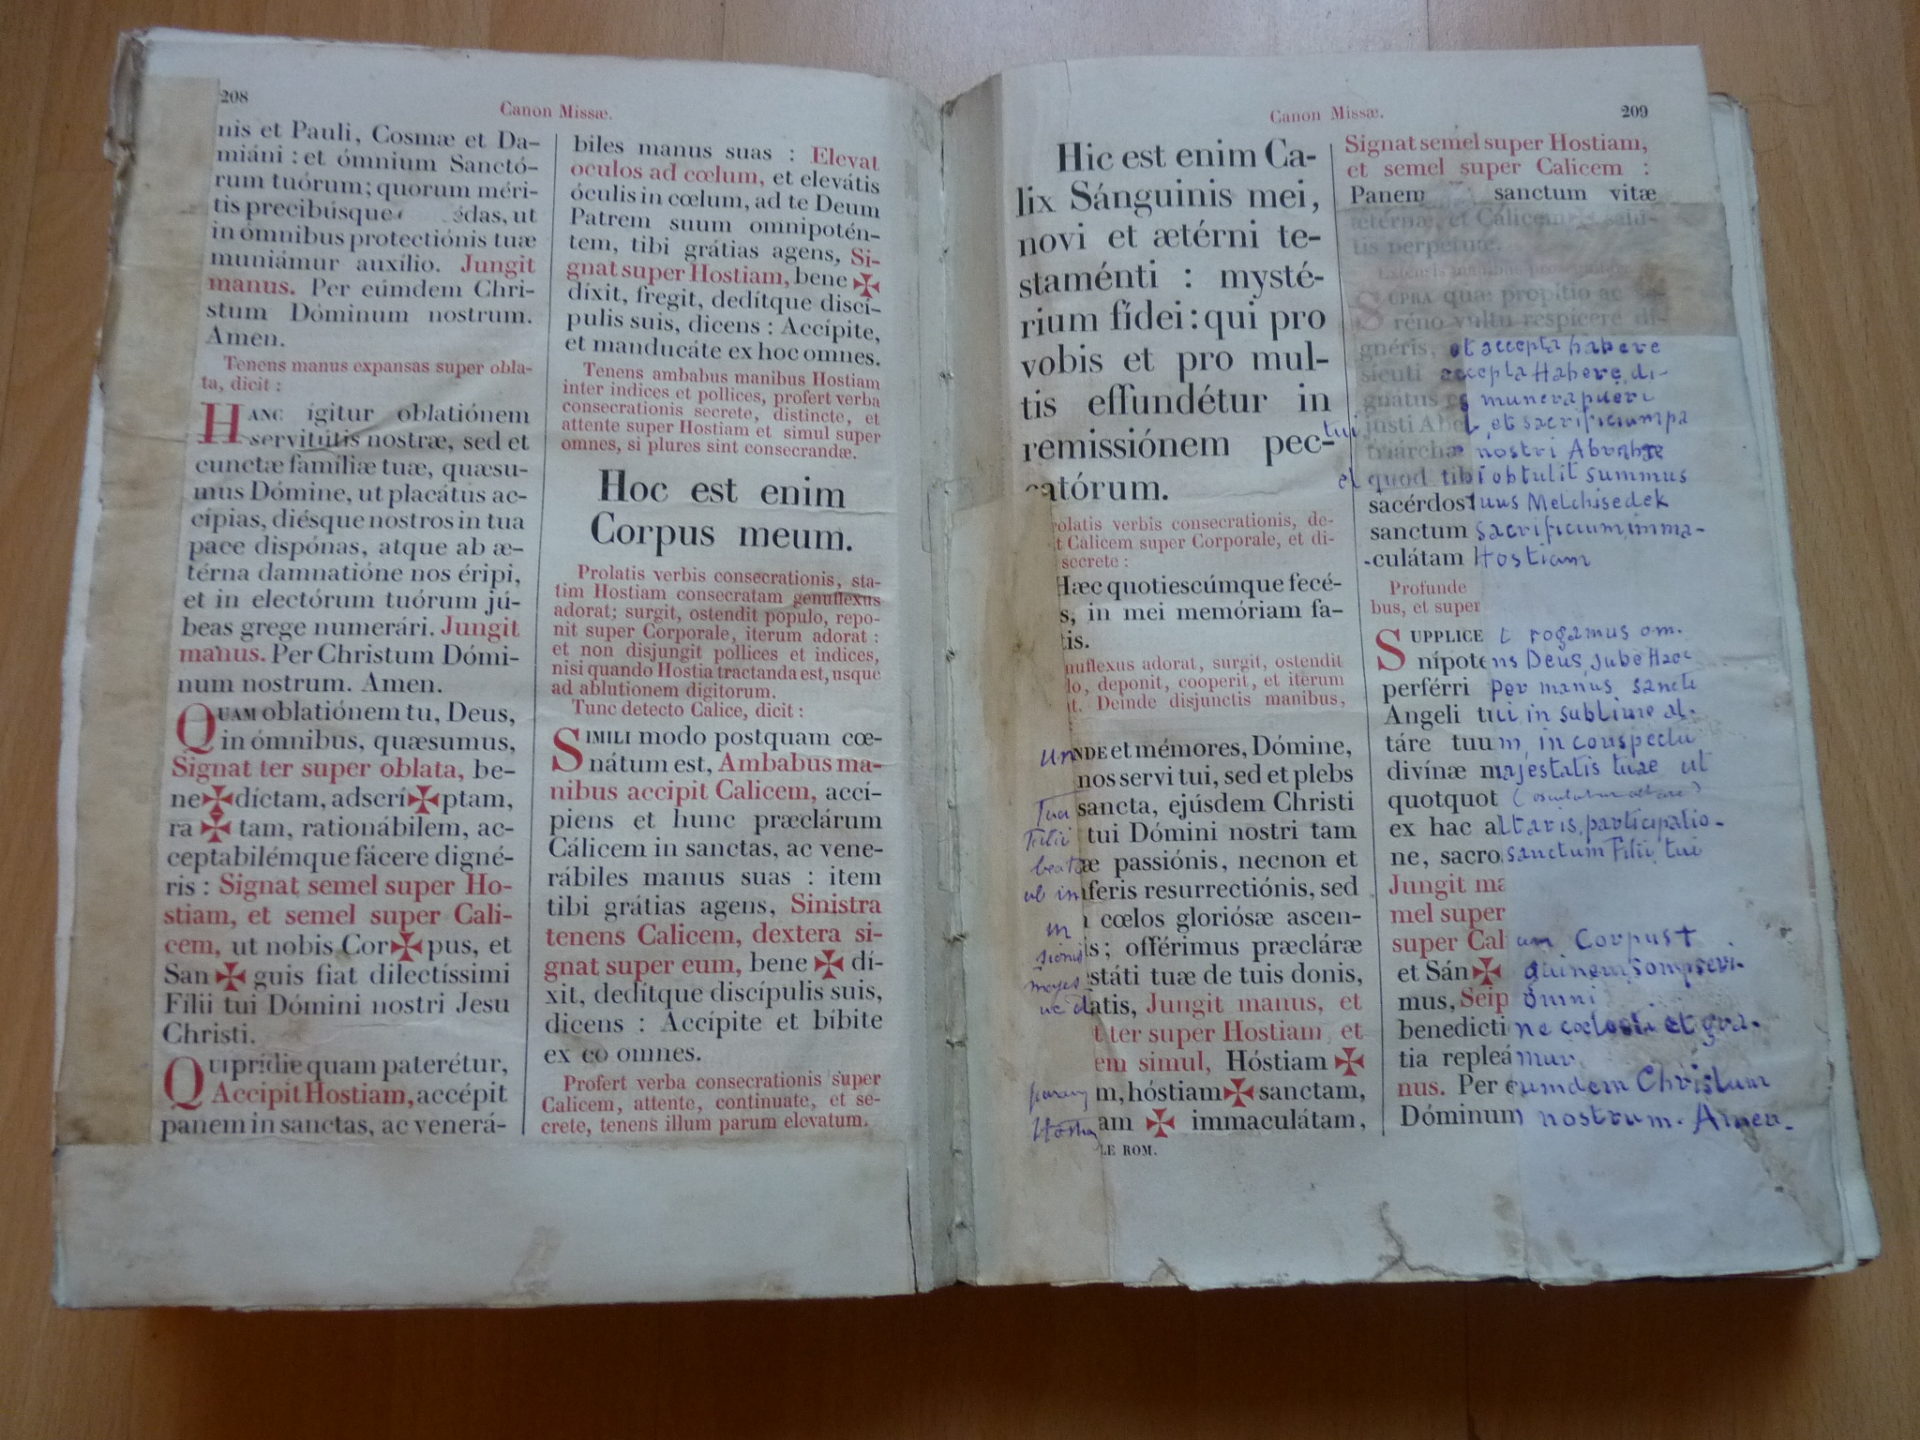 208
Canon Missæ.
nis et Pauli, Cosmæ et Da-
miáni : et ómnium Sanctó-
rum tuórum; quorum méri-
tis precibúsque édas, ut
in ómnibus protectiónis tuæ
muniámur auxílio. Jungit
manus. Per eúmdem Chri-
stum Dóminum nostrum.
Amen.
Tenens manus expansas super obla-
ta, dicit :
HANC ígitur oblatiónem
servitútis nostræ, sed et
cunctæ famíliæ tuæ, quæsu-
mus Dómine, ut placátus ac-
cípias, diésque nostros in tua
pace dispónas, atque ab æ-
térna damnatióne nos éripi,
et in electórum tuórum jú-
beas grege numerári. Jungit
manus. Per Christum Dómi-
num nostrum. Amen.
QUAM oblatiónem tu, Deus,
in ómnibus, quæsumus,
Signat ter super oblata, be-
ne✠díctam, adscrí✠ptam,
ra✠tam, rationábilem, ac-
ceptabilémque fácere digné-
ris : Signat semel super Ho-
stiam, et semel super Cali-
cem, ut nobis Cor✠pus, et
San✠guis fiat dilectíssimi
Fílii tui Dómini nostri Jesu
Christi.
QUI prídie quam paterétur,
Accipit Hostiam, accépit
panem in sanctas, ac venerá-
biles manus suas : Elevat
oculos ad cœlum, et elevátis
óculis in cœlum, ad te Deum
Patrem suum omnipotén-
tem, tibi grátias agens, Si-
gnat super Hostiam, bene✠
díxit, fregit, dedítque discí-
pulis suis, dicens : Accípite,
et manducáte ex hoc omnes.
Tenens ambabus manibus Hostiam
inter indices et pollices, profert verba
consecrationis secrete, distincte, et
attente super Hostiam et simul super
omnes, si plures sint consecrandæ.
Hoc est enim
Corpus meum.
Prolatis verbis consecrationis, sta-
tim Hostiam consecratam genuflexus
adorat; surgit, ostendit populo, repo-
nit super Corporale, iterum adorat :
et non disjungit pollices et indices,
nisi quando Hostia tractanda est, usque
ad ablutionem digitorum.
Tunc detecto Calice, dicit :
SIMILI modo postquam cœ-
nátum est, Ambabus ma-
nibus accipit Calicem, accí-
piens et hunc præclárum
Cálicem in sanctas, ac vene-
rábiles manus suas : item
tibi grátias agens, Sinistra
tenens Calicem, dextera si-
gnat super eum, bene✠dí-
xit, dedítque discípulis suis,
dicens : Accípite et bíbite
ex eo omnes.
Profert verba consecrationis super
Calicem, attente, continuate, et se-
crete, tenens illum parum elevatum.
Canon Missæ.
209
Hic est enim Ca-
lix Sánguinis mei,
novi et ætérni te-
staménti : mysté-
rium fídei : qui pro
vobis et pro mul-
tis effundétur in
remissiónem pec-
catórum.
rolatis verbis consecrationis, de-
t Calicem super Corporale, et di-
secrete :
Hæc quotiescúmque fecé-
s, in mei memóriam fa-
tis.
nuflexus adorat, surgit, ostendit
lo, deponit, cooperit, et iterum
t. Deinde disjunctis manibus,
UnNDE et mémores, Dómine,
nos servi tui, sed et plebs
Tua sancta, ejúsdem Christi
Filii tui Dómini nostri tam
beatæ passiónis, necnon et
ab inferis resurrectiónis, sed
in cœlos gloriósæ ascen-
sionis; offérimus præcláræ
majestáti tuæ de tuis donis,
ac datis, Jungit manus, et
t ter super Hostiam et
em simul, Hóstiam✠
puram, hóstiam✠sanctam,
Hostiam✠immaculátam,
LE ROM.
Signat semel super Hostiam,
et semel super Calicem :
Panem sanctum vitæ
ætérnæ, et Cálicem salú-
tis perpétuæ.
Extensis manibus prosequitur
SUPRA quæ propítio ac se-
réno vultu respícere di-
gnéris, et accepta habere
sícuti accepta Habere di-
gnátus es munera pueri
tui justi Abel, et sacrificium pa
triárchæ nostri Abrahæ
et quod tibi obtulit summus
sacérdos tuus Melchisedek
sanctum sacrificium, imma-
-culátam Hostiam
Profunde
bus, et super
SUPPLICE t rogamus om.
nípotens Deus, jube Haec
perférri per manus sancti
Angeli tui in sublime al-
táre tuum, in conspectu
divínæ majestatis tuae ut
quotquot
ex hac altaris, participatio-
ne, sacrosanctum Filii tui
Jungit ma
mel super
super Cal um Corpus +
et Sán✠ guinem, sompseri-
mus, Seip omni
benedictine coelesti et gra-
tia repleámur.
nus. Per eumdem Christum
Dóminum nostrum. Amen.